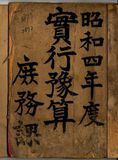 昭和四年度
實行豫算
庶務係